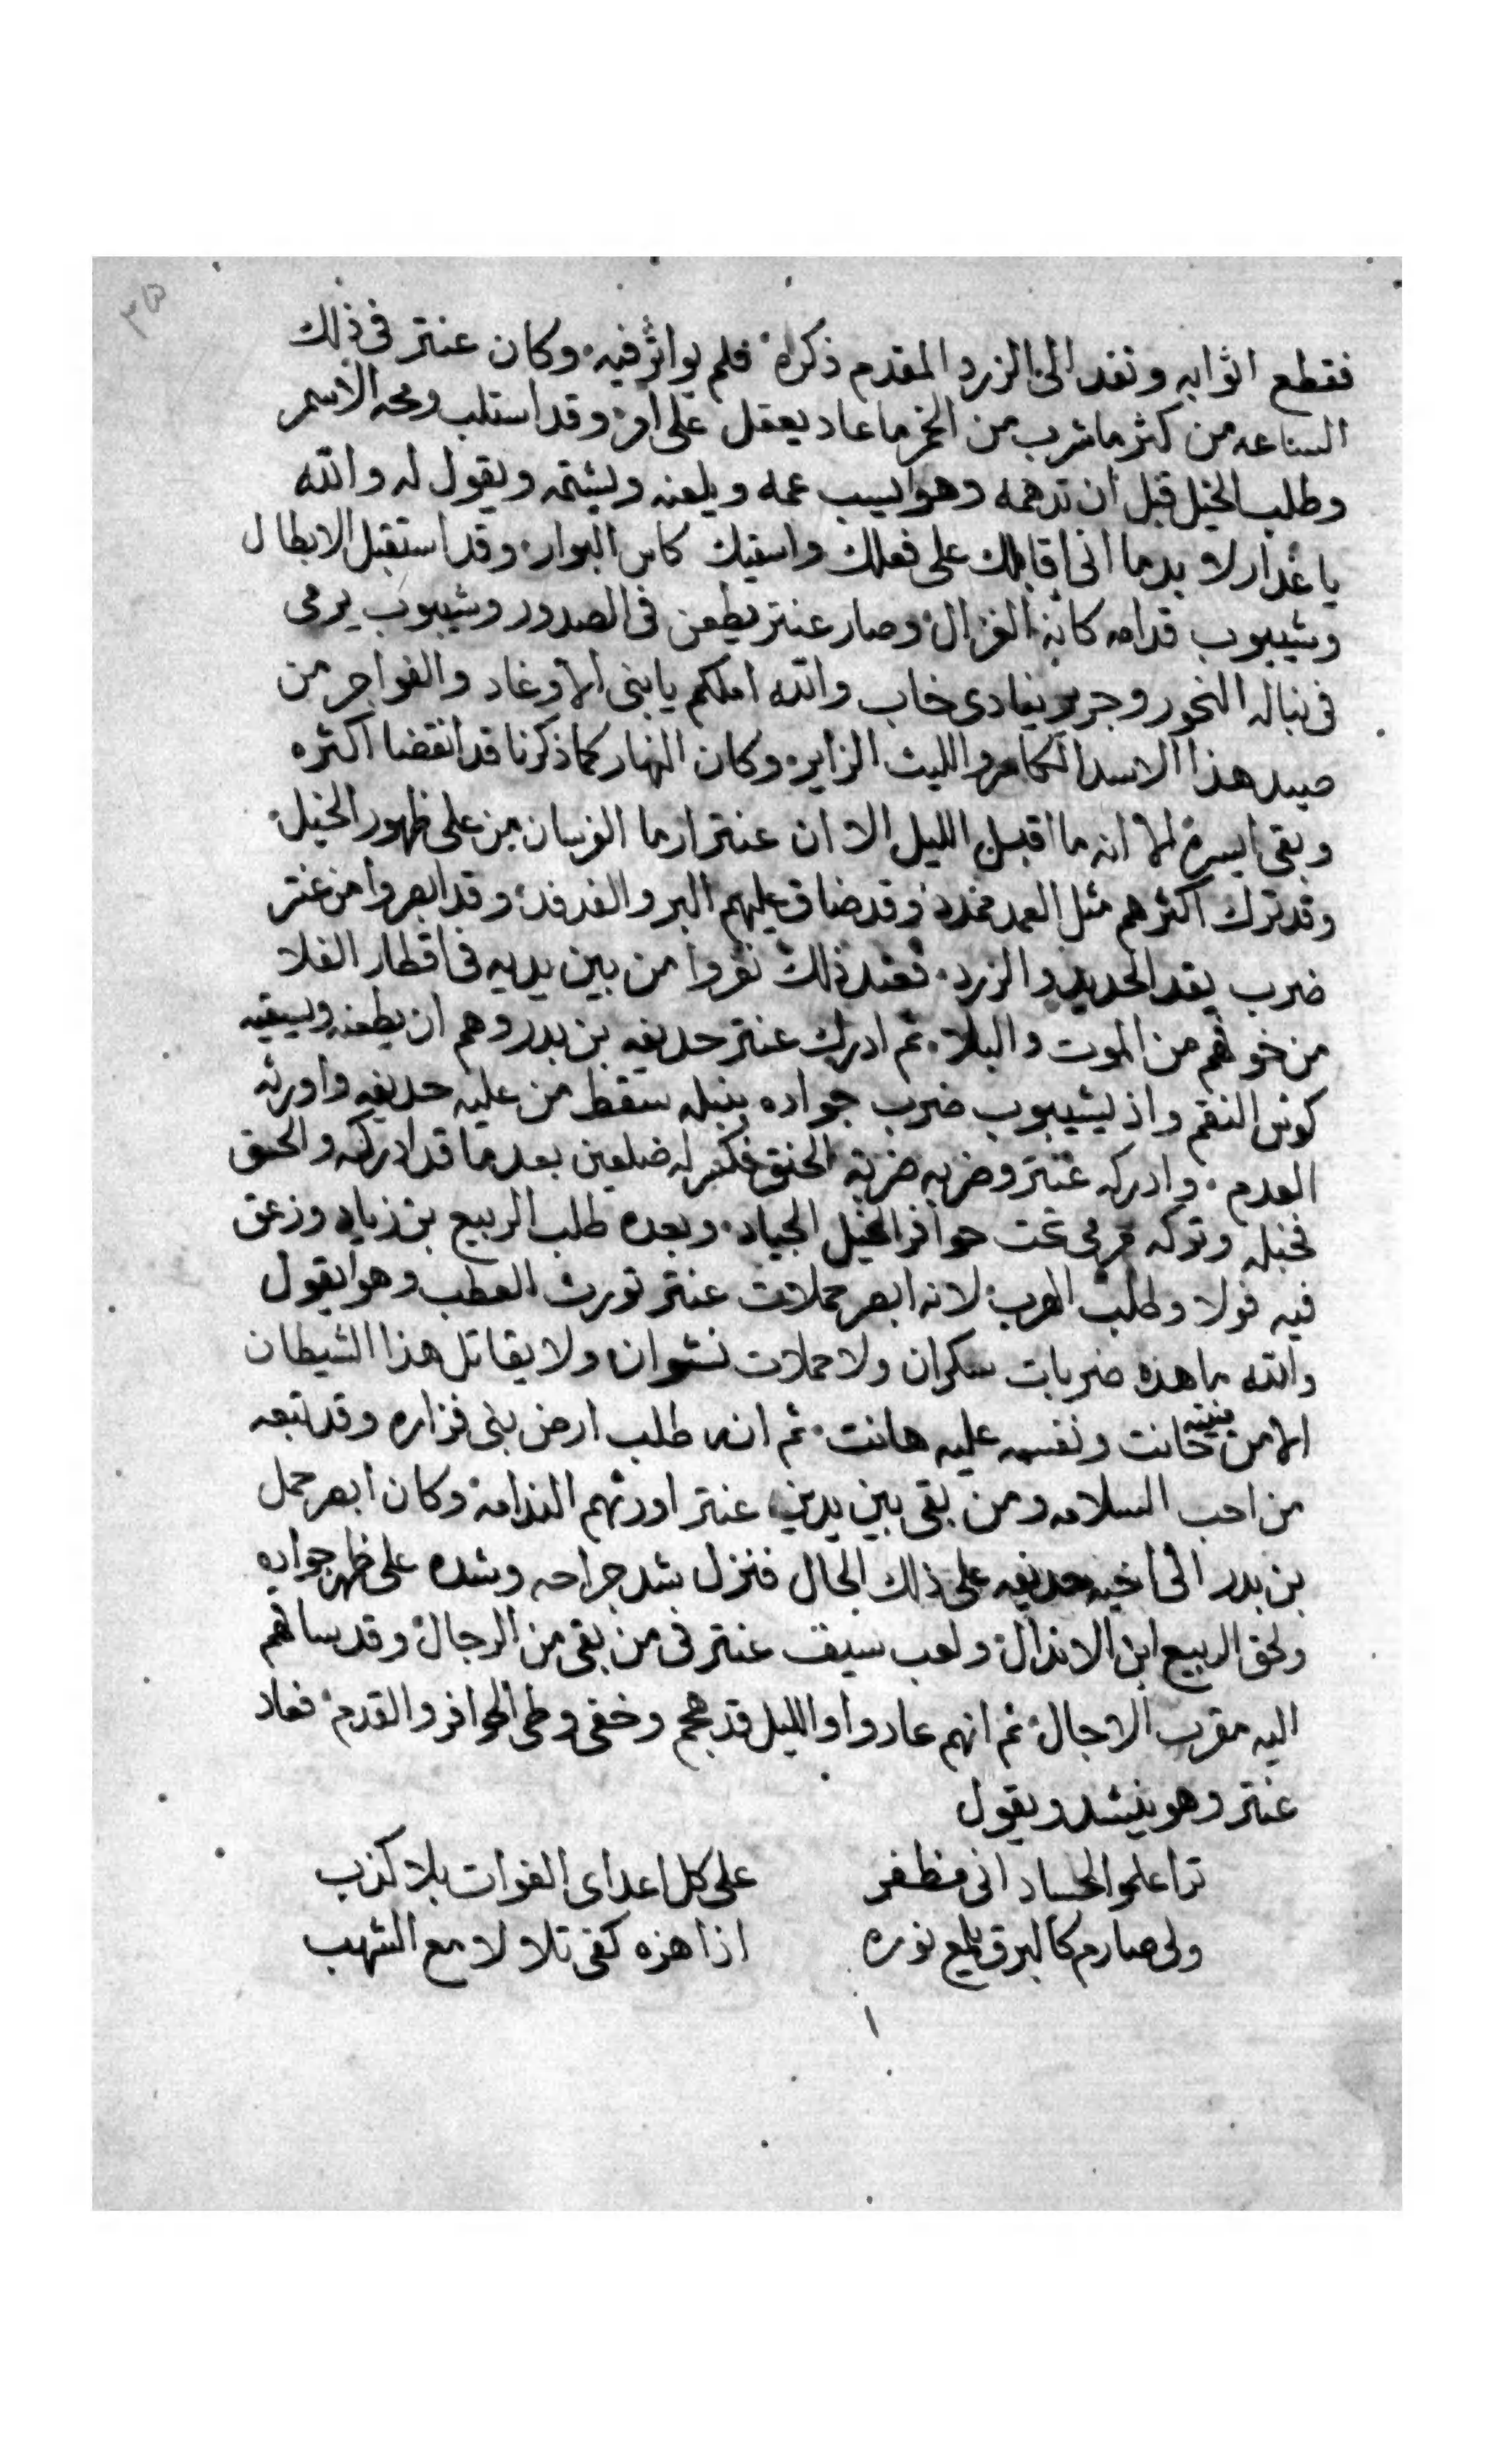 ٣٥
فقطع اثوابه ونفد الى الزرد المقدم ذكره فلم يواثر فيه وكان عنتر فى ذلك
الساعه من كثر ما شرب من الخمر ما عاد يعقل على امر وقد استلب رمحه الاسمر
وطلب الخيل قبل ان تدهمه وهو ايسب عمه ويلعنه ويشتمه ويقول له والله
يا غدار لا بد ما انى اقابلك على فعلك واسقيك كاس البوار وقد استقبل الابطال
وشيبوب قدامه كانه الغزال وصار عنتر يطعن فى الصدور وشيبوب يرمى
فى نباله النحور وجرير ينادى خاب والله املكم يا بنى الاوغاد والفواجر من
صيد هذا الاسد الكاسر والليث الزاير وكان النهار كما ذكرنا قد انقضا اكثره
وبقى ايسره الا انه ما اقبل الليل الا ان عنتر ارما الفرسان من على ظهور الخيل
وقد ترك اكثرهم مثل العمد ممدد وقد ضاق عليهم البر والفدفد وقد ابصروا من عنتر
ضرب يقد الحديد والزرد فعند ذلك نفروا من بين يديه فى اقطار الفلا
من خوفهم من الموت والبلا ثم ادرك عنتر حديفه بن بدر وهم ان يطعنه ويسقيه
كوس النقم واذ بشيبوب ضرب جواده بنبله سقط من عليه حديفه واورثه
العدم وادركه عنتر وضربه ضربة الحنق فكسر له ضلعين بعدما قد ادركه والحنق
فخبله وتركه مرمى تحت حوافر الخيل الجياد وبعده طلب الربيع بن زياد وزعق
فيه فولا وطلب الهرب لانه ابصر حملات عنتر تورث العطب وهو ايقول
والله ما هذه ضربات سكران ولا حملات نشوان ولا يقاتل هذا الشيطان
الا من منيته حانت ونفسه عليه هانت ثم انه طلب ارض بنى فزاره وقد تبعه
من احب السلامه ومن بقى بين يدين عنتر اورثهم الندامه وكان ابصر حمل
بن بدر الى اخيه حديفه على ذلك الحال فنزل شد جراحه وشده على ظهر جواده
ولحق الربيع ابن الاندال ولعب سيف عنتر فى من بقى من الرجال وقد ساقهم
اليه مقرب الاجال ثم انهم عادوا والليل قد هجم وخفى وطى الحوافر والقدم فعاد
عنتر وهو ينشد ويقول
ترا علموا الحساد انى مظفر على كل اعداى الفوات بلا كذب
ولى صارم كالبرق يلمع نوره اذا هزه كفى تلا لا مع الشهب